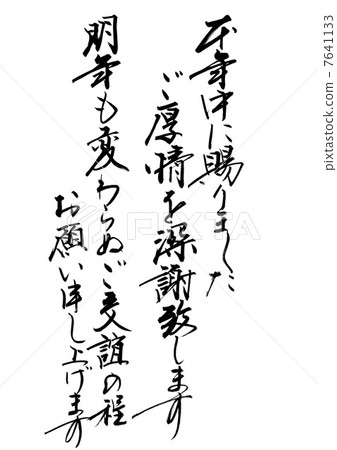 本年中に賜りました
ご厚情を深謝致します
明年も変わらぬご交誼の程
お願い申し上げます
PIXTA
pixtastock.com - 7641133